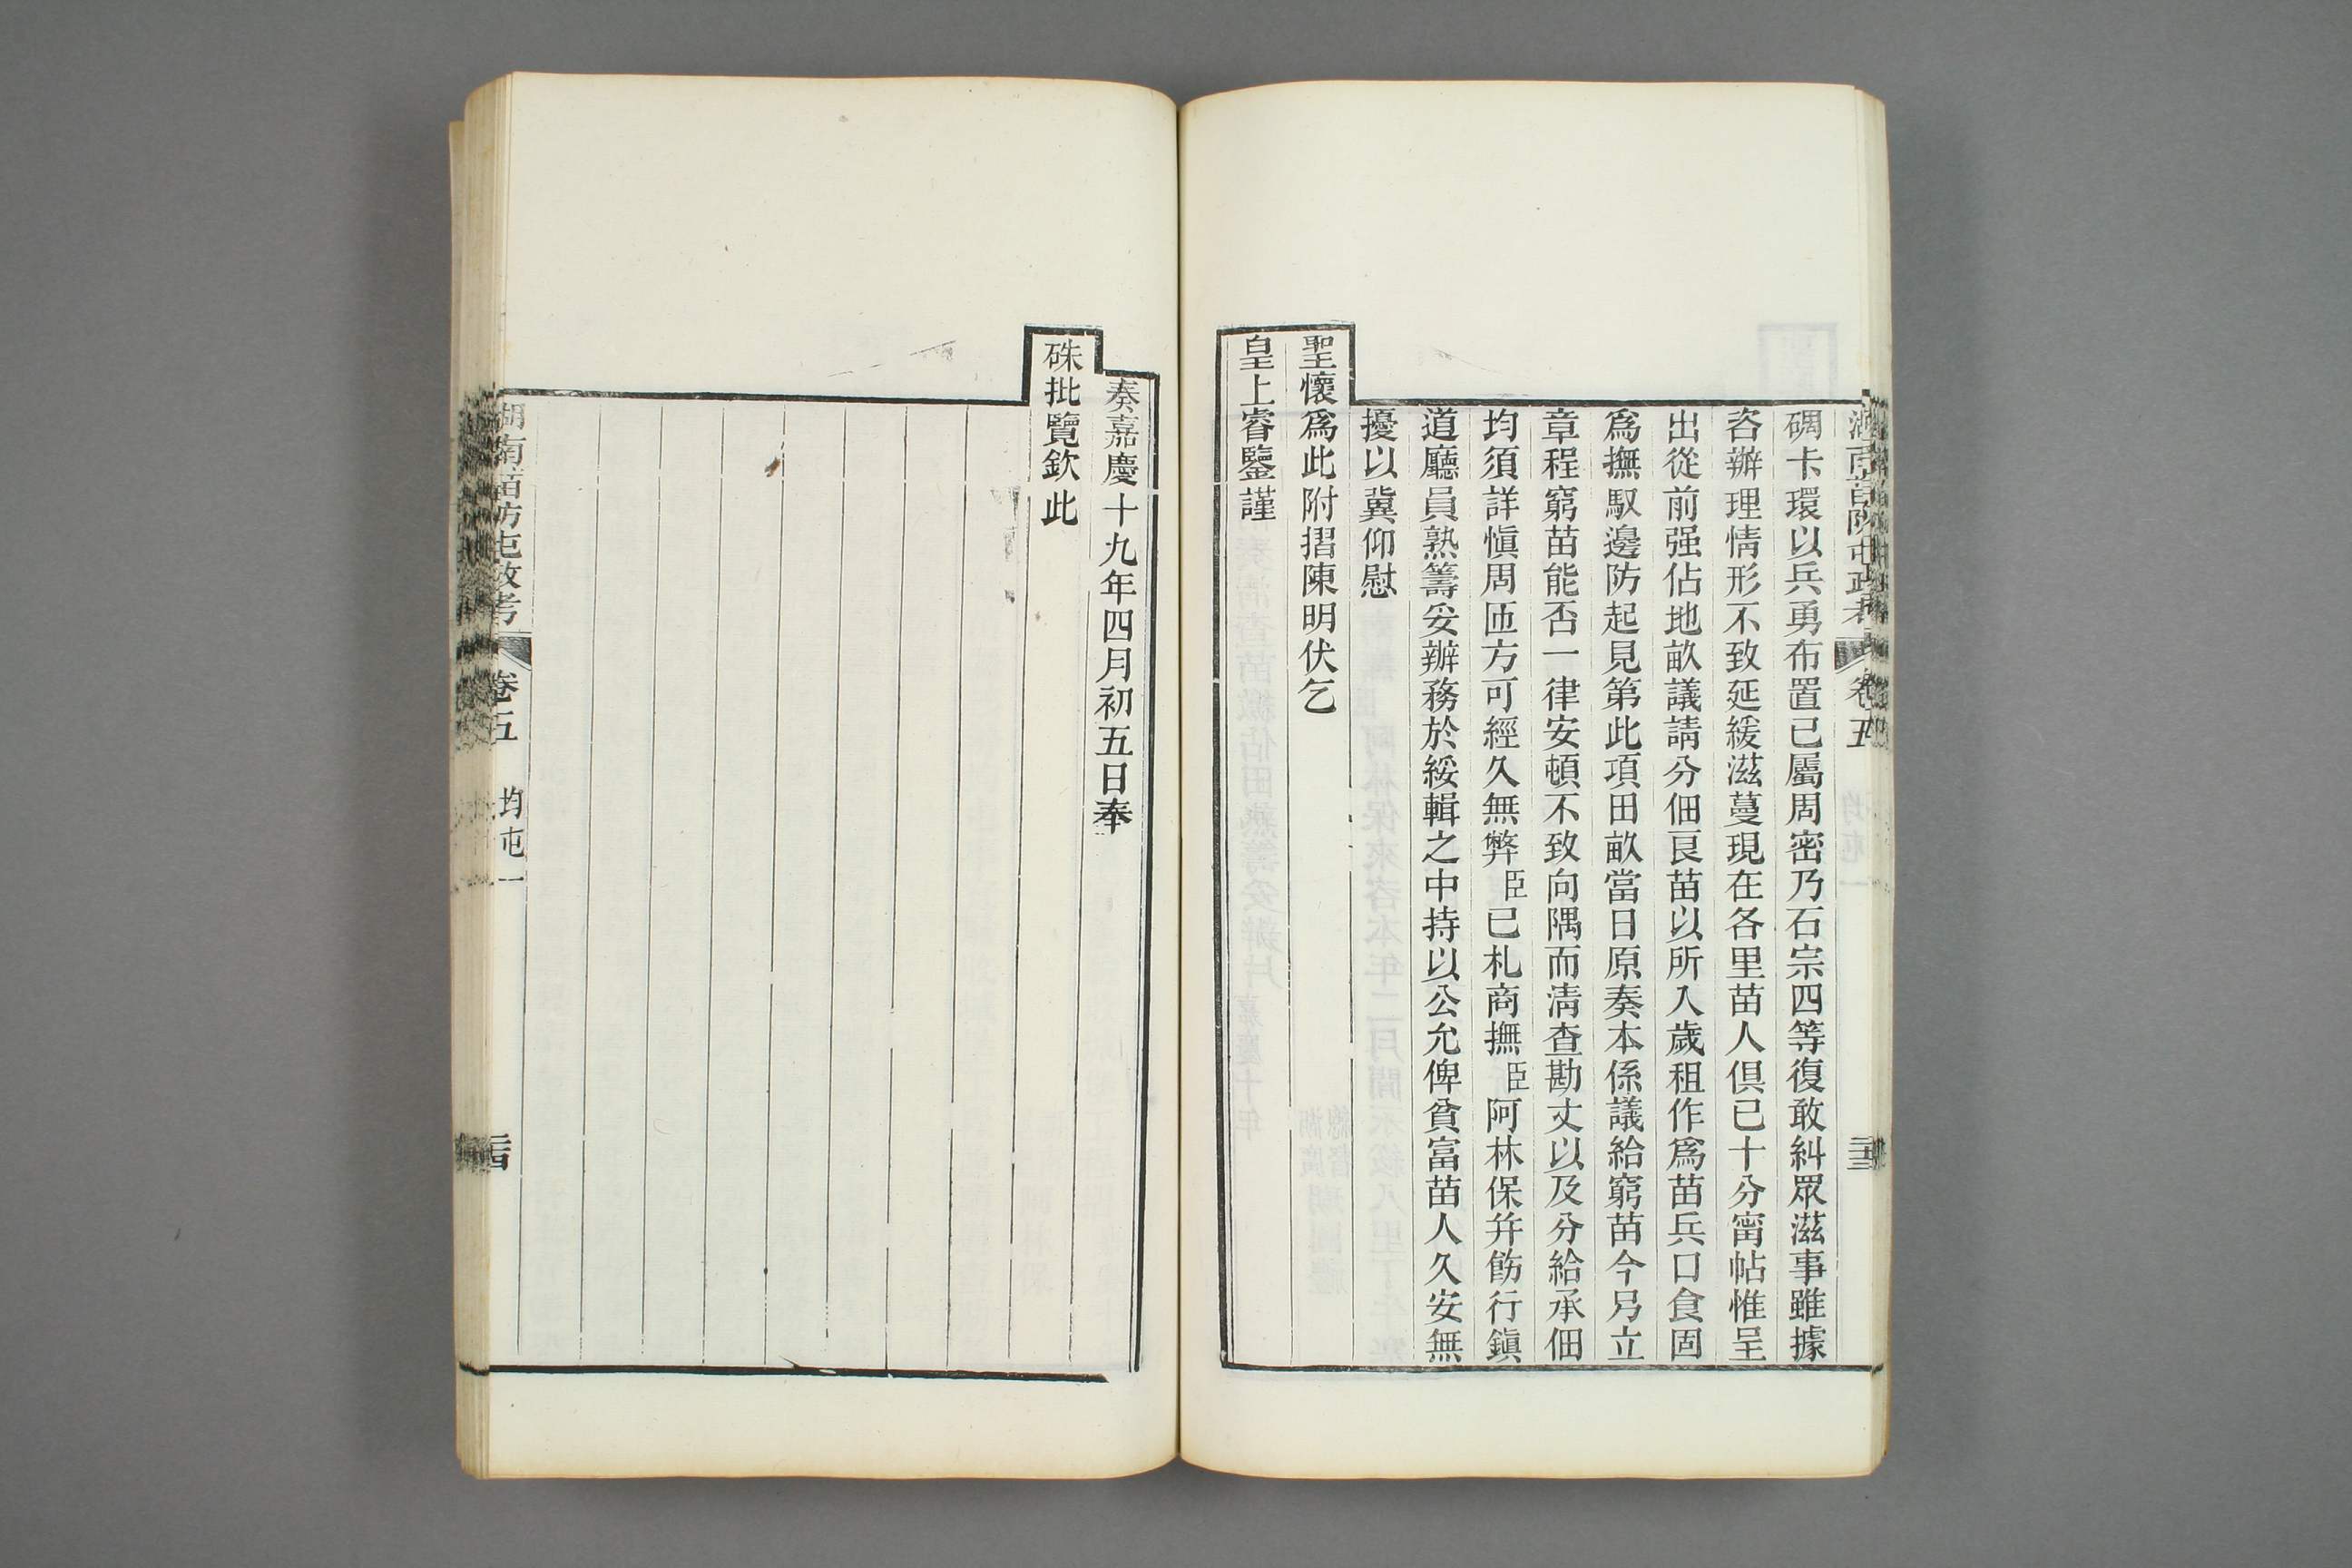 碉卡環以兵勇布置已屬周密乃石宗四等復敢糾眾滋事雖據
咨辦理情形不致延緩滋蔓現在各里苗人俱已十分甯帖惟呈
出從前强佔地畝議請分佃良苗以所入歲租作爲苗兵口食固
爲撫馭邊防起見第此項田畝當日原奏本係議給窮苗今另立
章程窮苗能否一律安頓不致向隅而淸查勘丈以及分給承佃
均須詳愼周匝方可經久無弊臣已札商撫臣阿林保并飭行鎭
道廳員熟籌妥辦務於綏輯之中持以公允俾貧富苗人久安無
擾以冀仰慰
聖懷爲此附摺陳明伏乞
皇上睿鑒謹
奏嘉慶十九年四月初五日奉
硃批覽欽此
湖南苗防屯政考 卷五 均屯一